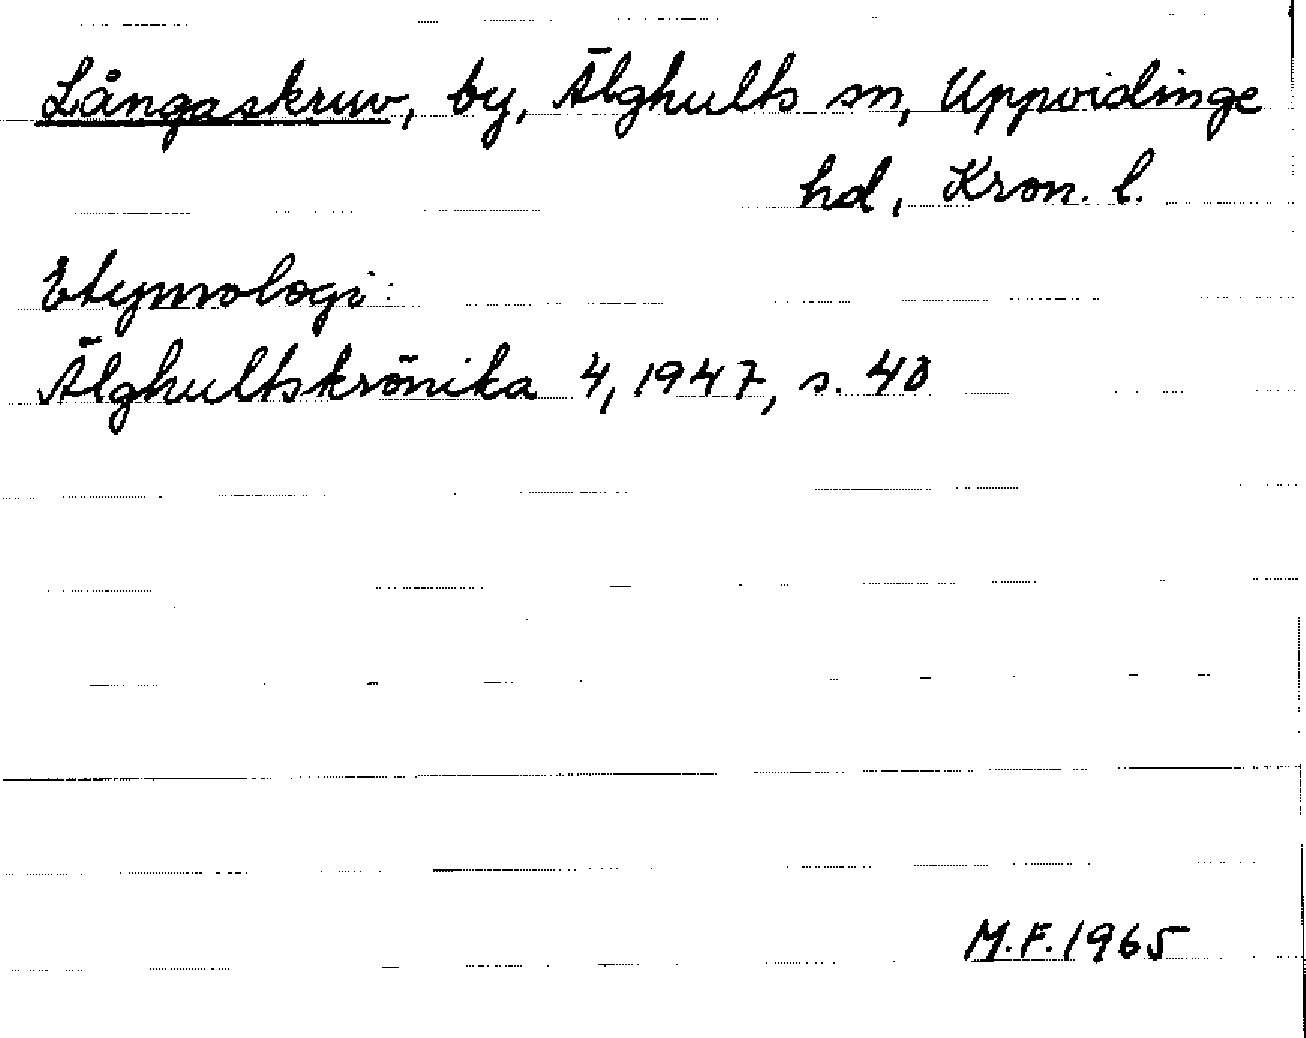 Långaskruv, by, Älghults sn, Uppvidinge
hd, Kron. l.
Etymologi:
Älghultskrönika 4, 1947, s. 40
M.F. 1965